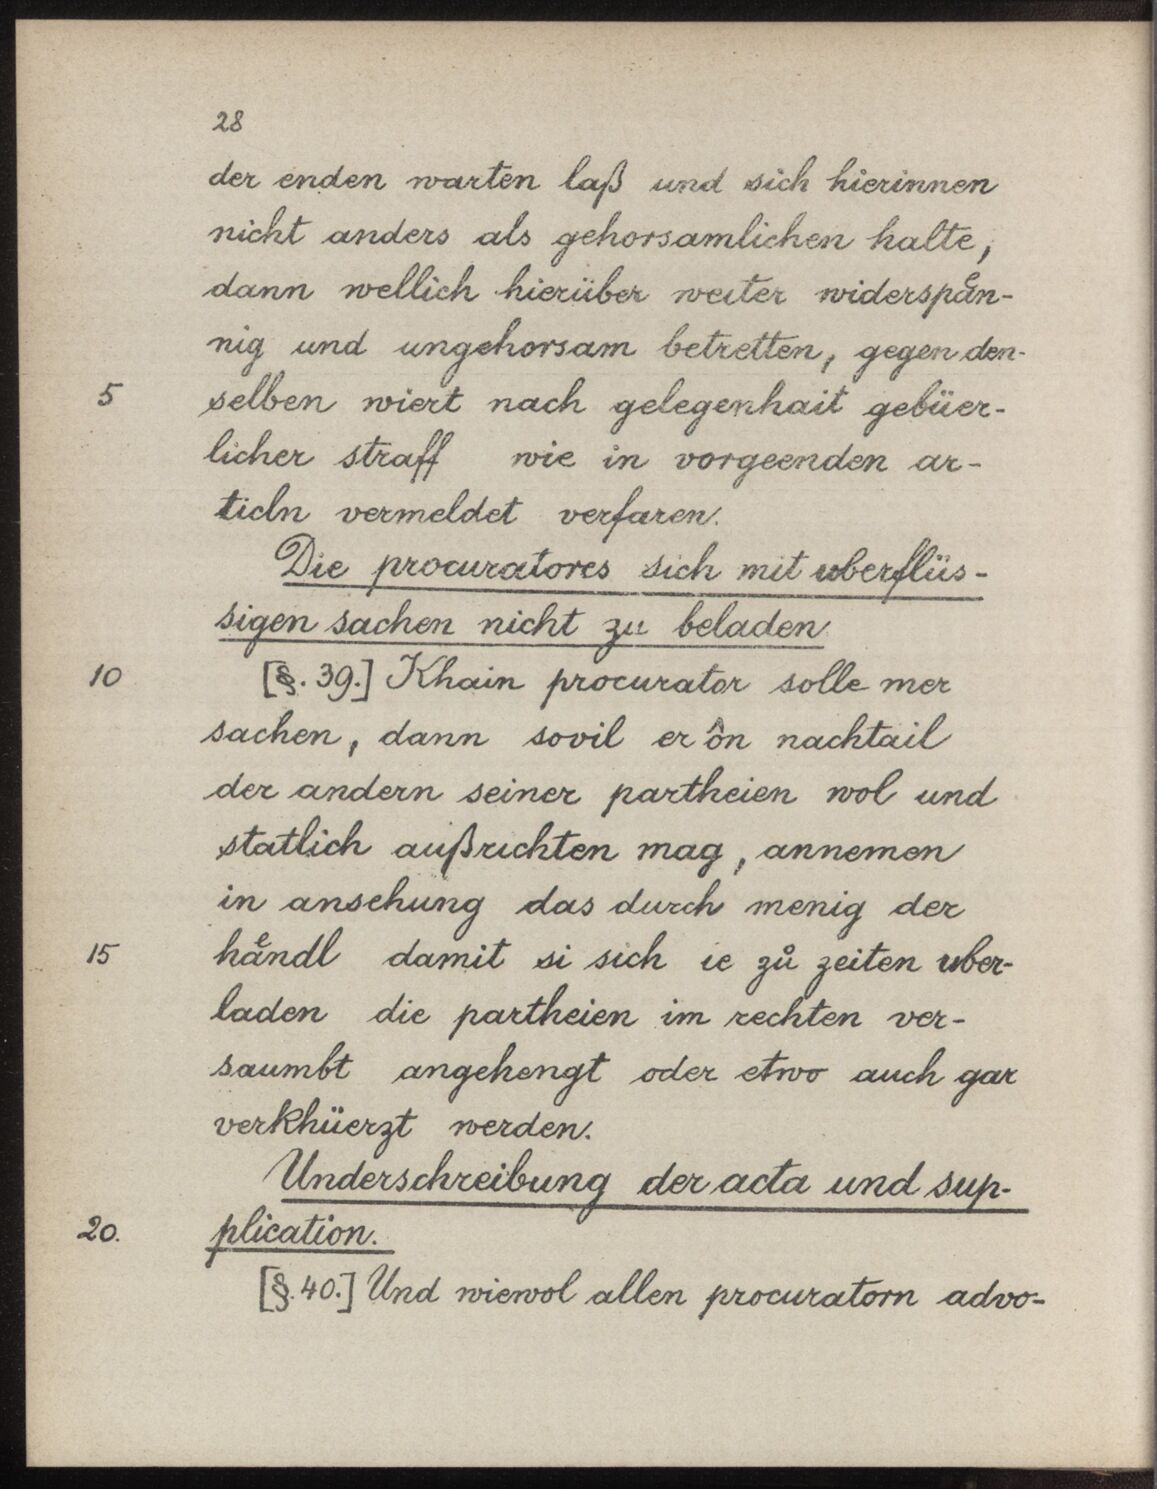 28
der enden warten laß und sich hierinnen
nicht anders als gehorsamlichen halte,
dann wellich hierüber weiter widerspaͤn-
nig und ungehorsam betretten, gegen den-
5 selben wiert nach gelegenhait gebüer-
licher straff wie in vorgeenden ar-
ticln vermeldet verfaren.
Die procuratores sich mit uberflüs-
sigen sachen nicht zu beladen
10 [§. 39.] Khain procurator solle mer
sachen, dann sovil er ôn nachtail
der andern seiner partheien wol und
statlich außrichten mag, annemen
in ansehung das durch menig der
15 haͤndl damit si sich ie zů zeiten uber-
laden die partheien im rechten ver-
saumbt angehengt oder etwo auch gar
verkhüerzt werden.
Underschreibung der acta und sup-
20. plication.
[§. 40.] Und wiewol allen procuratorn advo-